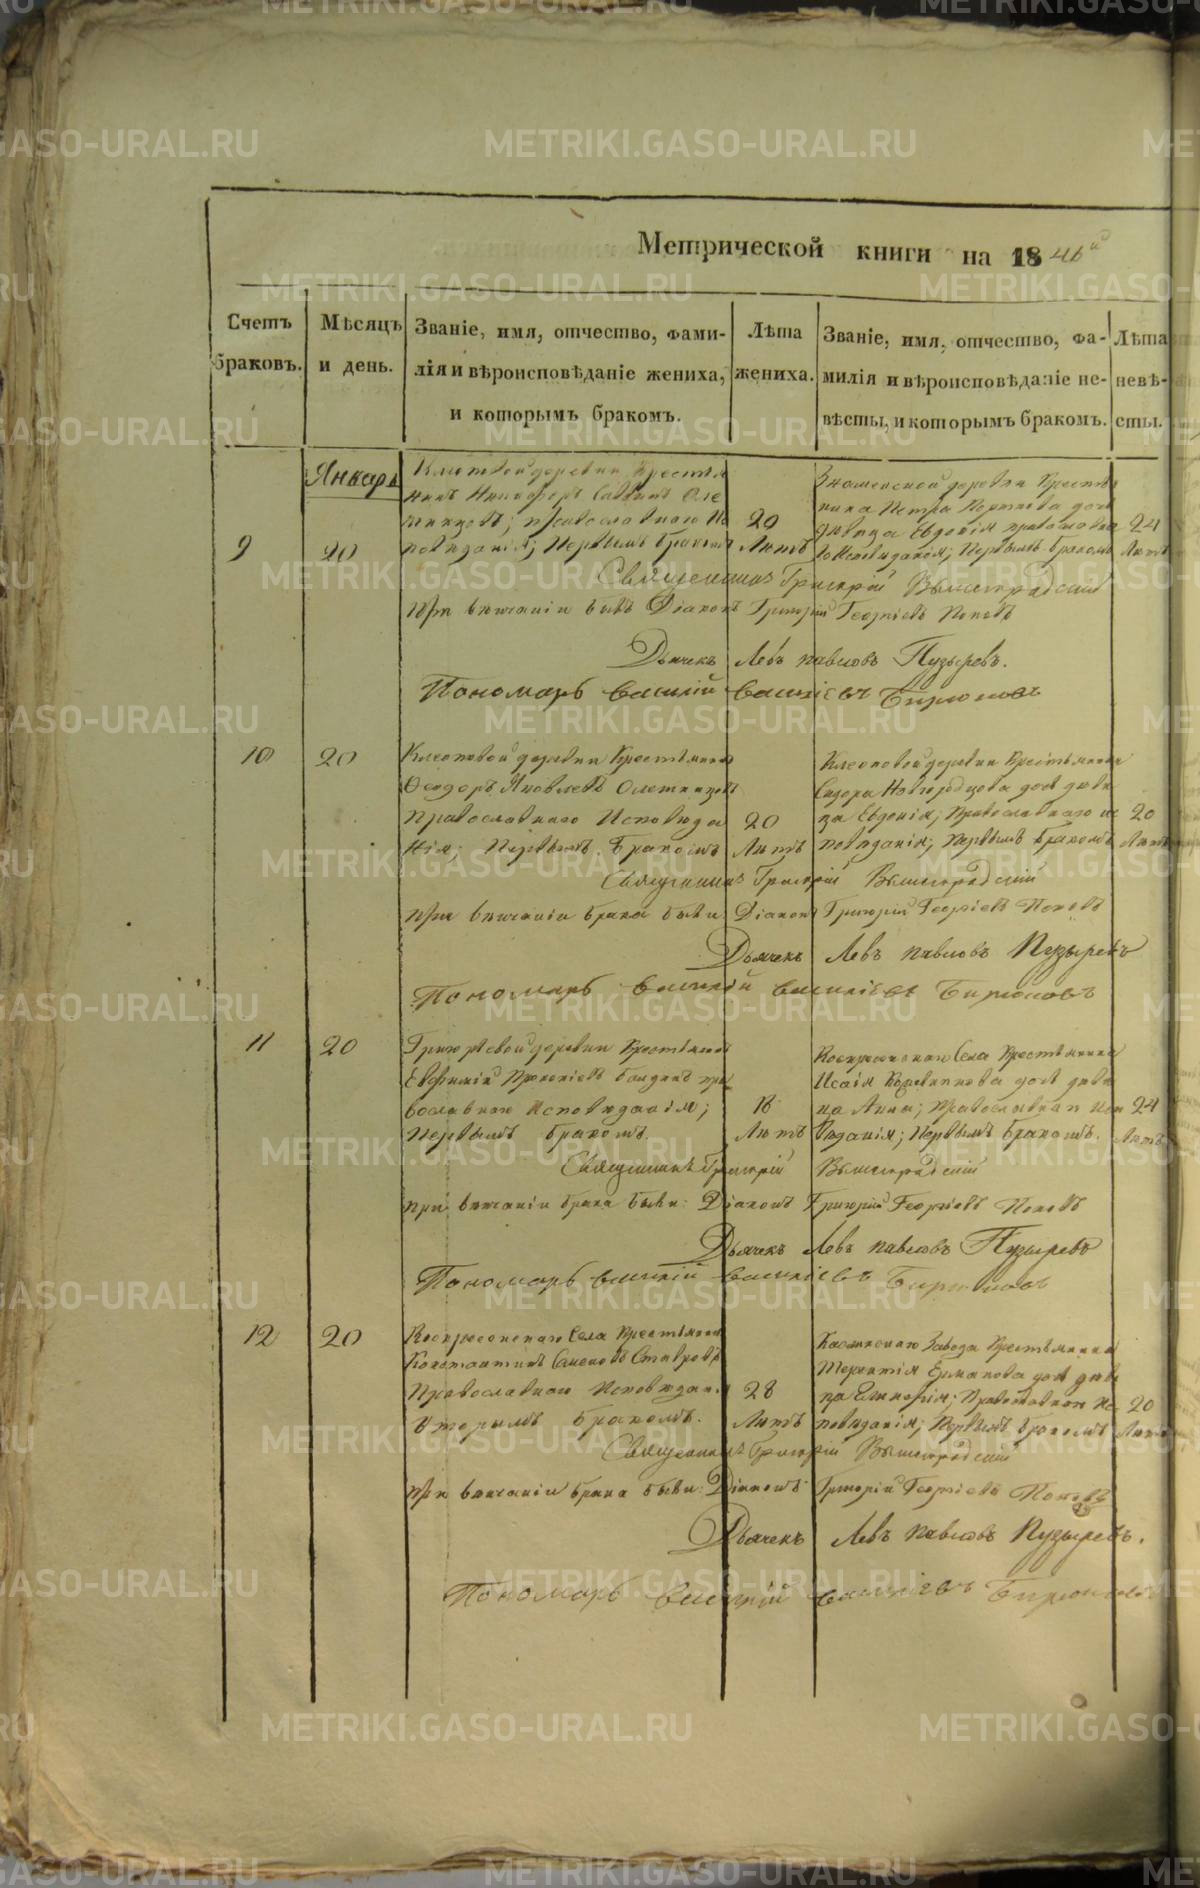 Метрической книги на 1846й
Счетъ браковъ.
Мѣсяцъ и день.
Званіе, имя, отчество, фами-
лія и вѣроисповѣданіе жениха,
и которымъ бракомъ.
Лѣта
жениха.
Званіе, имя, отчество, фа-
милія и вѣроисповѣданіе не-
вѣсты, и которымъ бракомъ.
Лѣта
невѣ-
сты.
Январь
9
20
деревни Крестья
нинъ Никифоръ Саввинъ
православнаго Ис
повѣданія; Первымъ бракомъ
20
Лѣтъ
Знаменской деревни Крестья
нина Петра дочь
дѣвица Евдокія православна
го Исповѣданія; Первымъ бракомъ
24
Лѣтъ
Священникъ Григорій Вышеградскій
При вѣнчаніи былъ Діаконъ Григорій Георгіевъ Поповъ
Дьячекъ Левъ Павловъ Пузыревъ.
Пономарь Василій Василіевъ Бирюковъ
10
20
деревни Крестьянинъ
Ѳеодоръ Яковлевъ
Православнаго Исповѣда
нія; Первымъ Бракомъ
20
Лѣтъ
деревни Крестьянина
Сидора Новгородцова дочь дѣви
ца Евдокія; Православнаго ис
повѣданія; Первымъ бракомъ
20
Лѣтъ
Священникъ Григорій Вышеградскій
При вѣнчаніи брака были Діаконъ Григорій Георгіевъ Поповъ
Дьячекъ Левъ Павловъ Пузыревъ
Пономарь Василій Василіевъ Бирюковъ
11
20
деревни Крестьянинъ
Евфимій Прокопіевъ пра
вославнаго Исповѣданія;
Первымъ бракомъ.
18
Лѣтъ
Воскресенскаго Села Крестьянина
Исаія дочь дѣви
ца Анна; Православнаго Испо
вѣданія; Первымъ Бракомъ.
24
Лѣтъ
Священникъ Григорій Вышеградскій
при вѣнчаніи брака были: Діаконъ Григорій Георгіевъ Поповъ
Дьячекъ Левъ Павловъ Пузыревъ
Пономарь Василій Василіевъ Бирюковъ
12
20
Воскресенскаго Села Крестьянинъ
Константинъ Семеновъ
Православнаго Исповѣданія
Вторымъ бракомъ.
28
Лѣтъ
Каслинскаго Завода Крестьянина
Терентія Ермакова дочь дѣви
ца Православнаго Ис
повѣданія; Первымъ бракомъ
20
Лѣтъ
Священникъ Григорій Вышеградскій
При вѣнчаніи брака были: Діаконъ Григорій Георгіевъ Поповъ
Дьячекъ Левъ Павловъ Пузыревъ.
Пономарь Василій Василіевъ Бирюковъ
METRIKI.GASO-URAL.RU